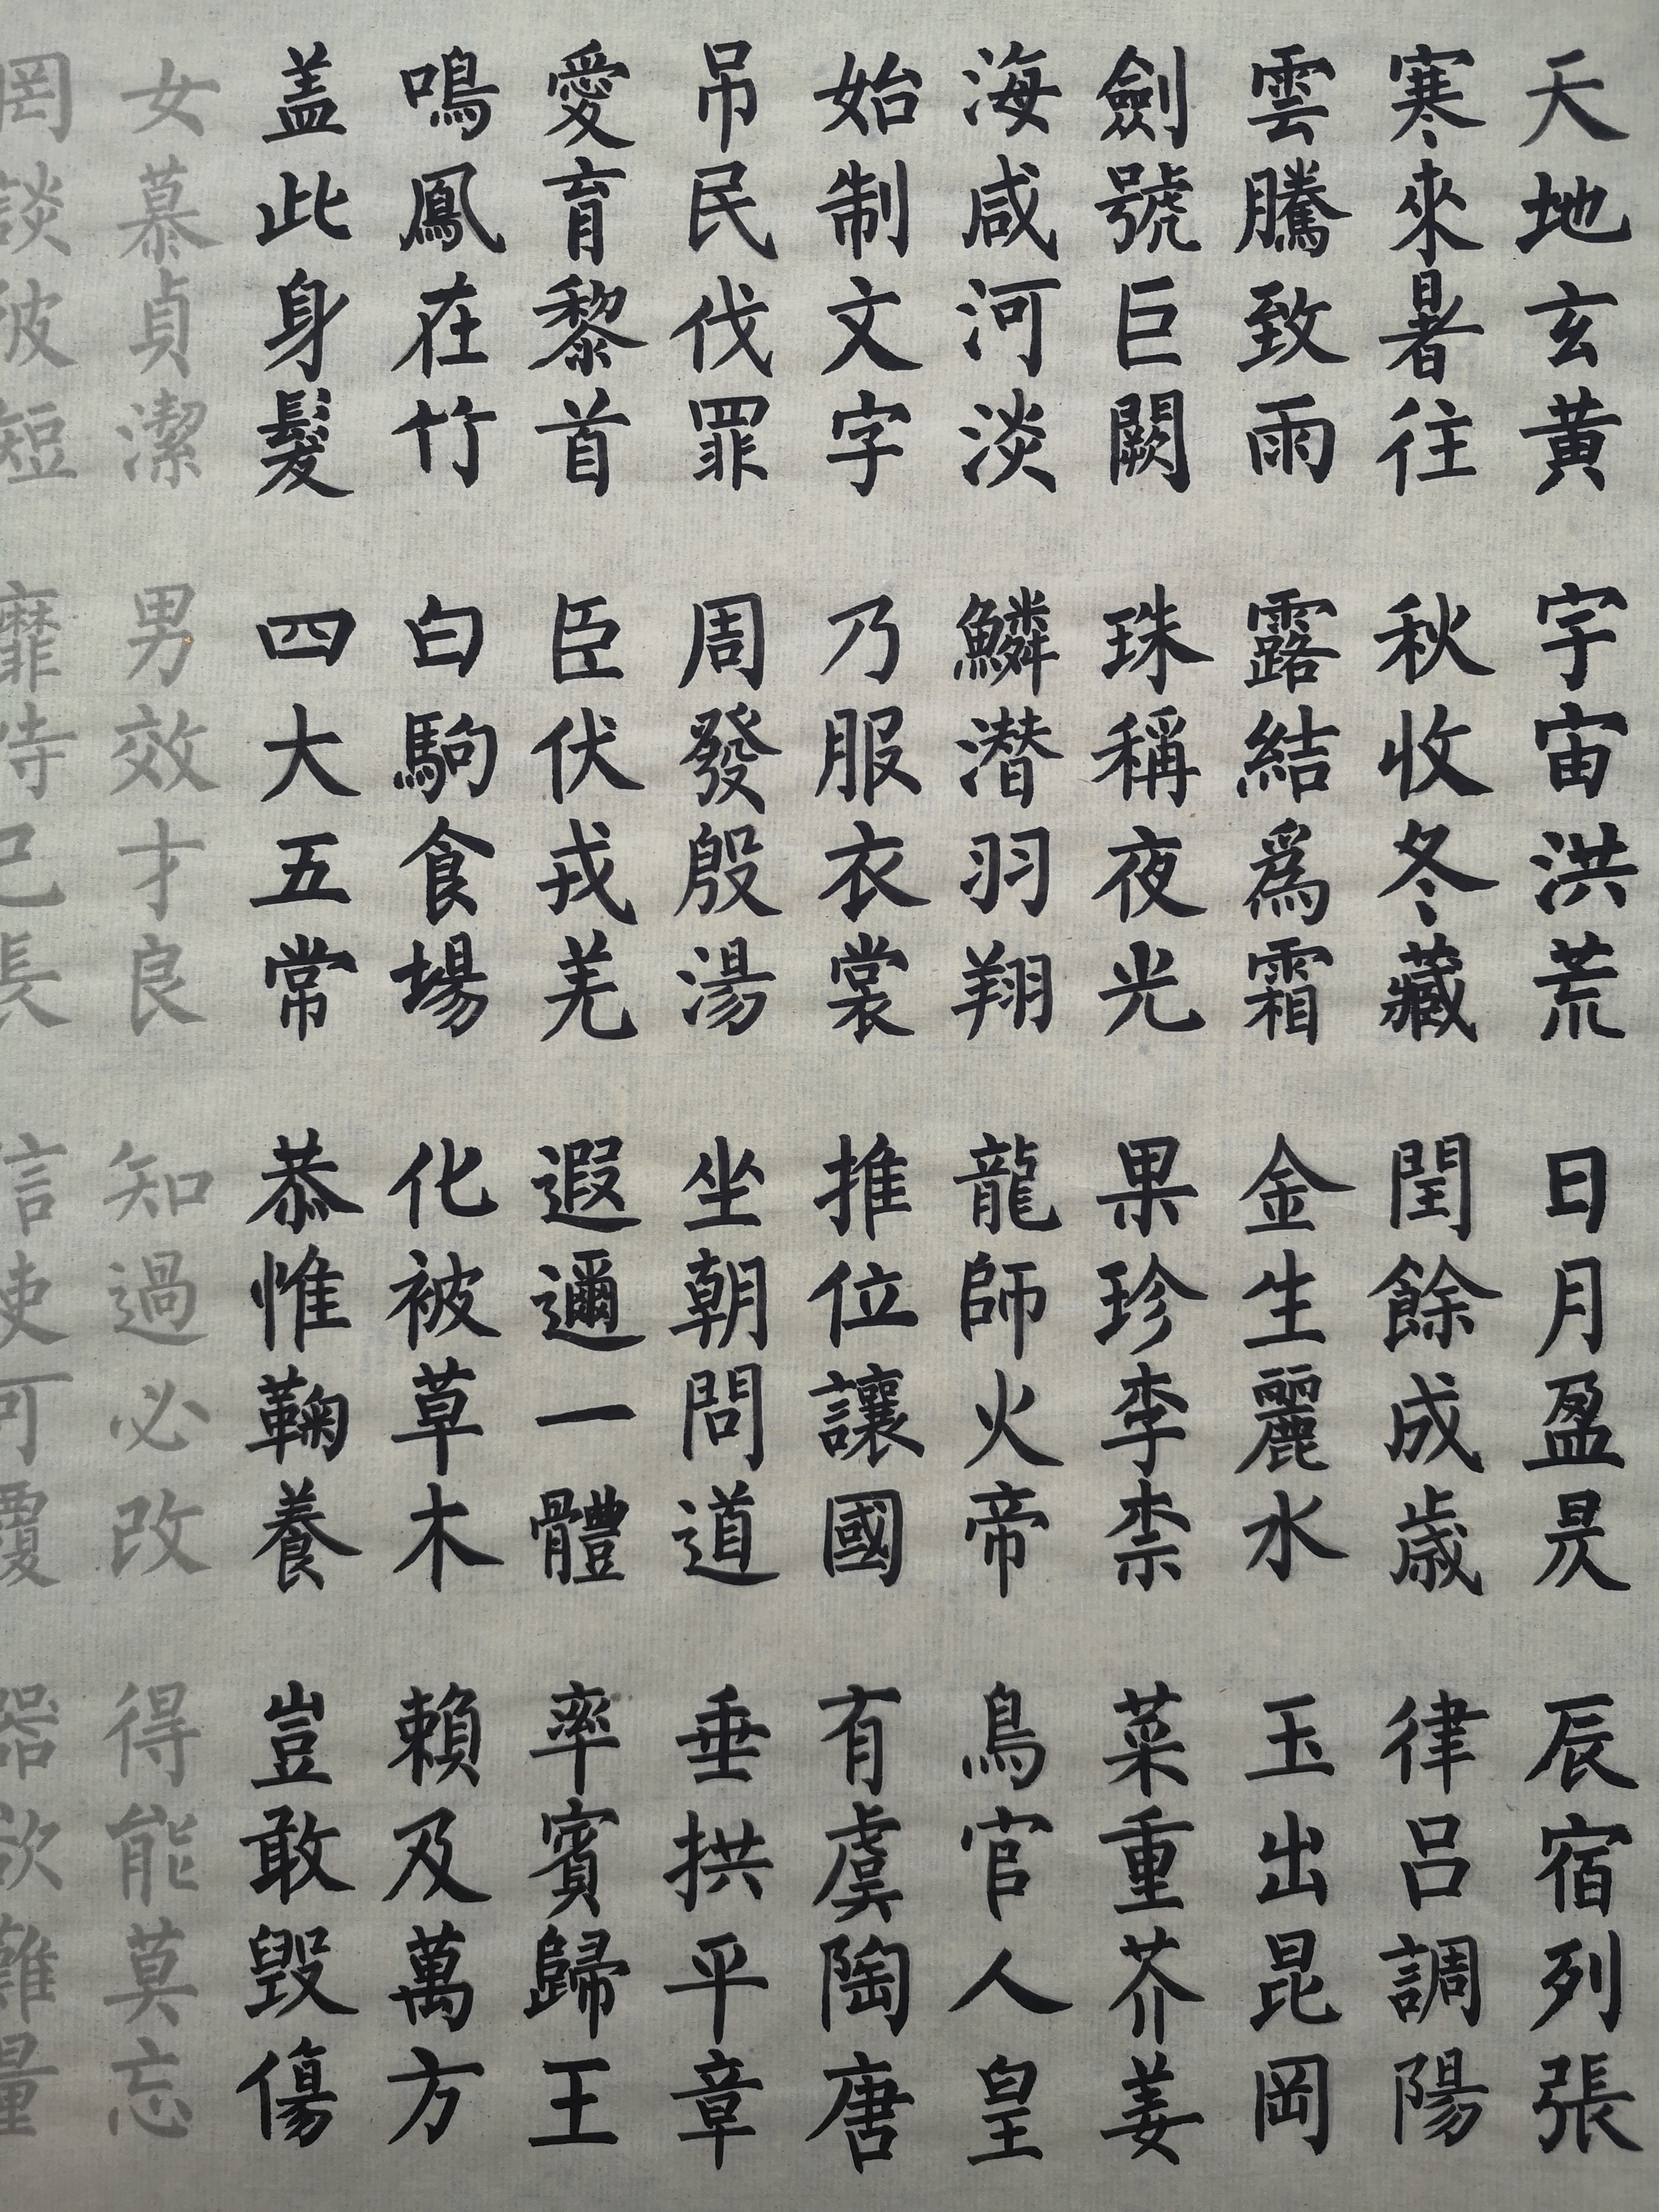 天地玄黃 宇宙洪荒 日月盈昃 辰宿列張
寒來暑往 秋收冬藏 閏餘成歲 律呂調陽
雲騰致雨 露結爲霜 金生麗水 玉出昆岡
劍號巨闕 珠稱夜光 果珍李柰 菜重芥姜
海咸河淡 鱗潛羽翔 龍師火帝 鳥官人皇
始制文字 乃服衣裳 推位讓國 有虞陶唐
吊民伐罪 周發殷湯 坐朝問道 垂拱平章
愛育黎首 臣伏戎羌 遐邇一體 率賓歸王
鳴鳳在竹 白駒食場 化被草木 賴及萬方
盖此身髮 四大五常 恭惟鞠養 豈敢毀傷
女慕貞潔 男效才良 知過必改 得能莫忘
罔談彼短 靡恃己長 信使可覆 器欲難量